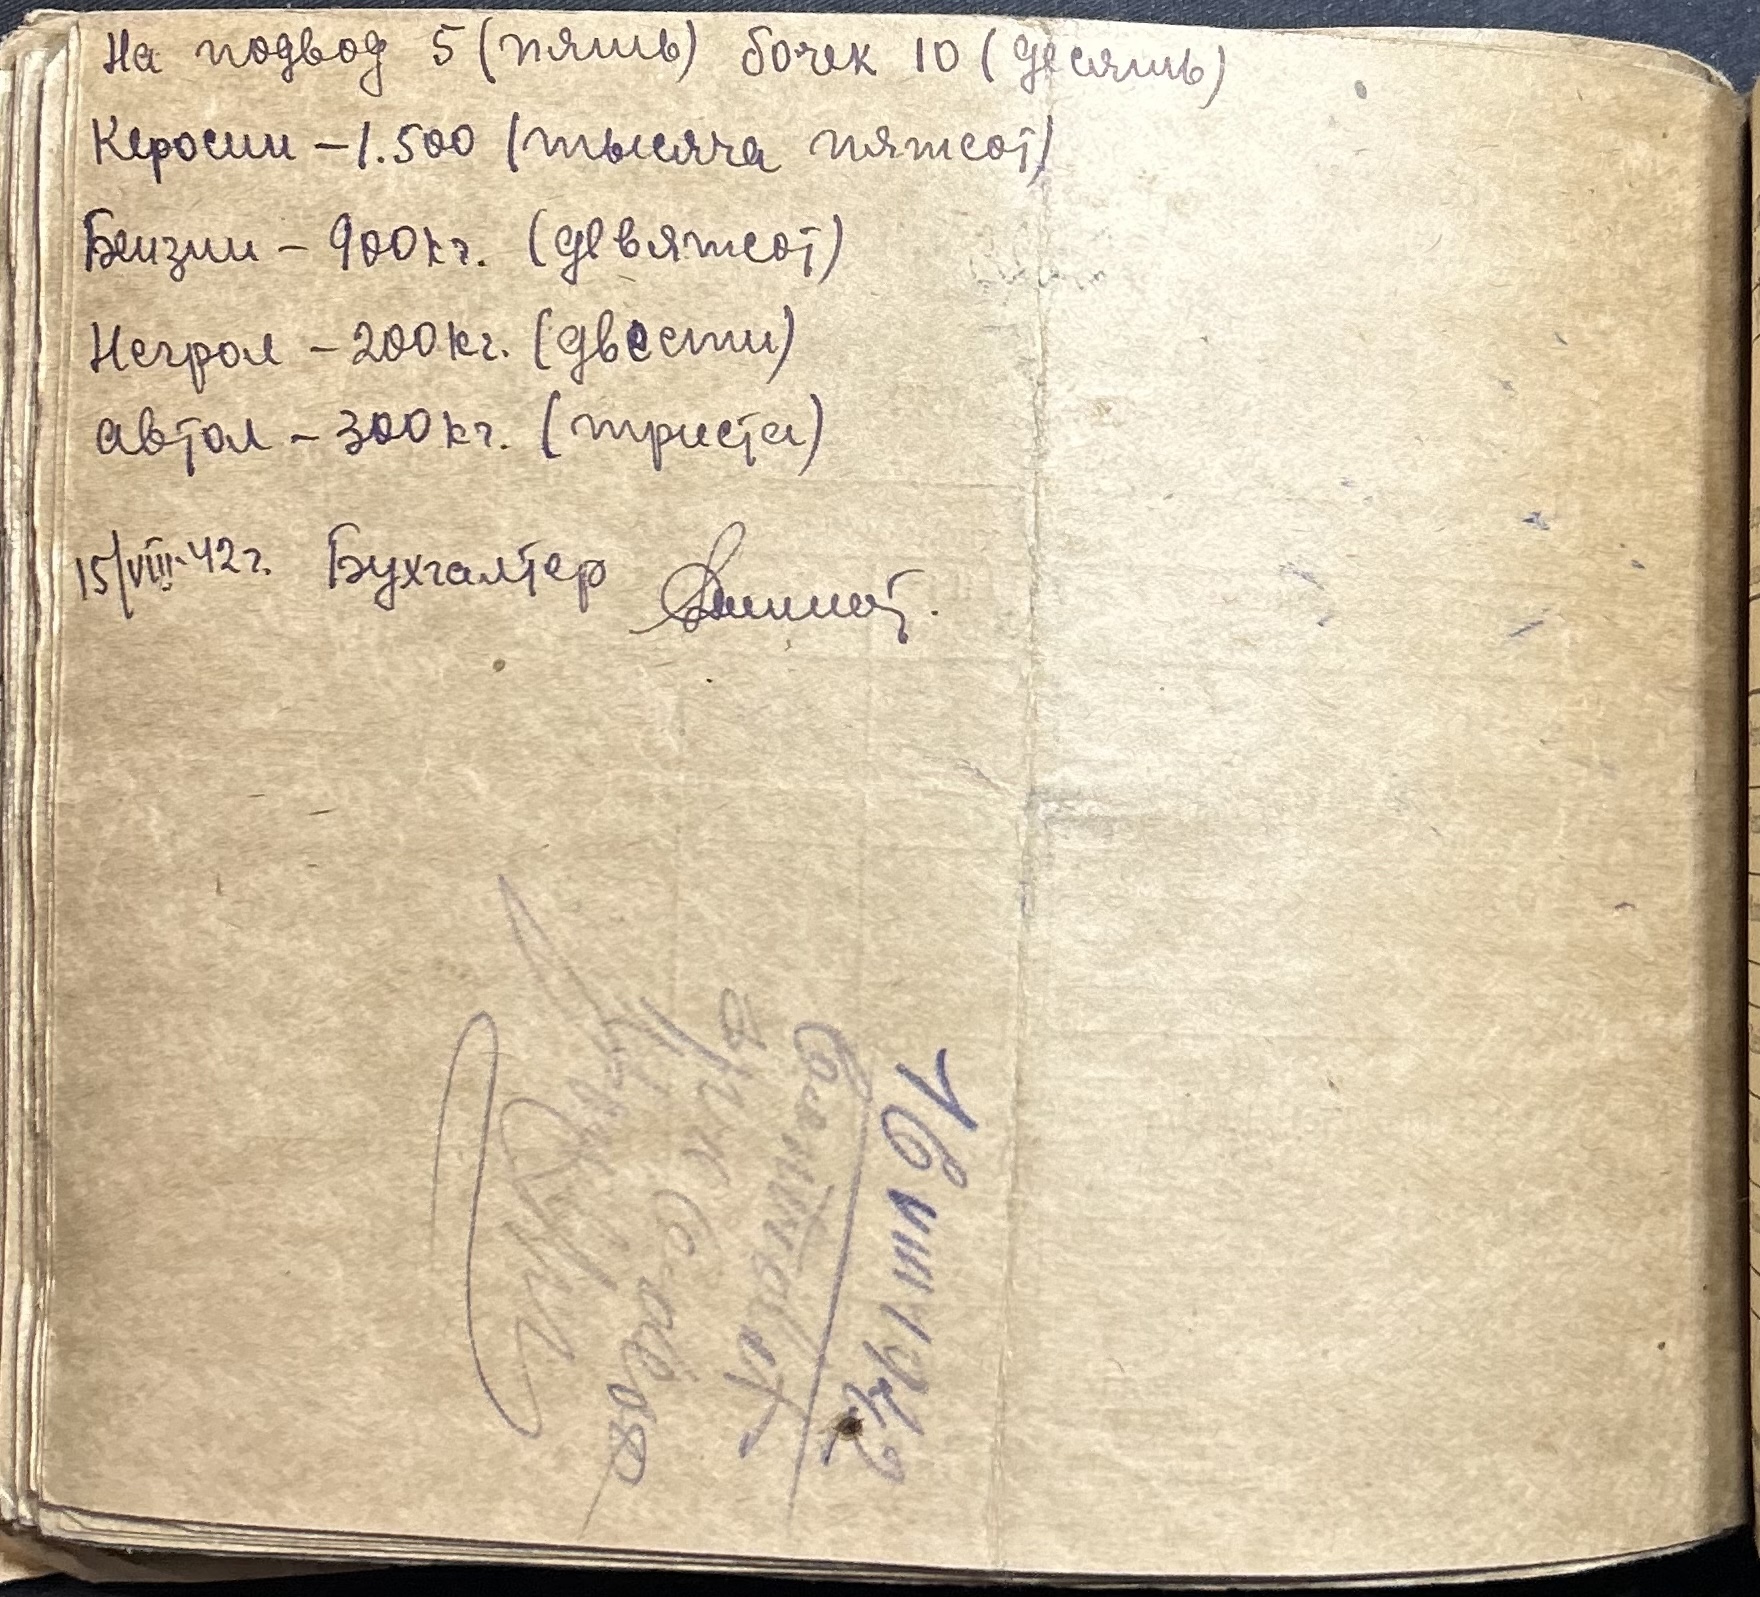 На подвод 5 (пять) бочек 10 (десять)
Керосин – 1.500 (тысяча пятсот)
Бензин – 900 кг. (девятсот)
Негрол – 200 кг. (двести)
автол – 300 кг. (триста)
15/VIII-42 г. Бухгалтер
16 VIII 1942